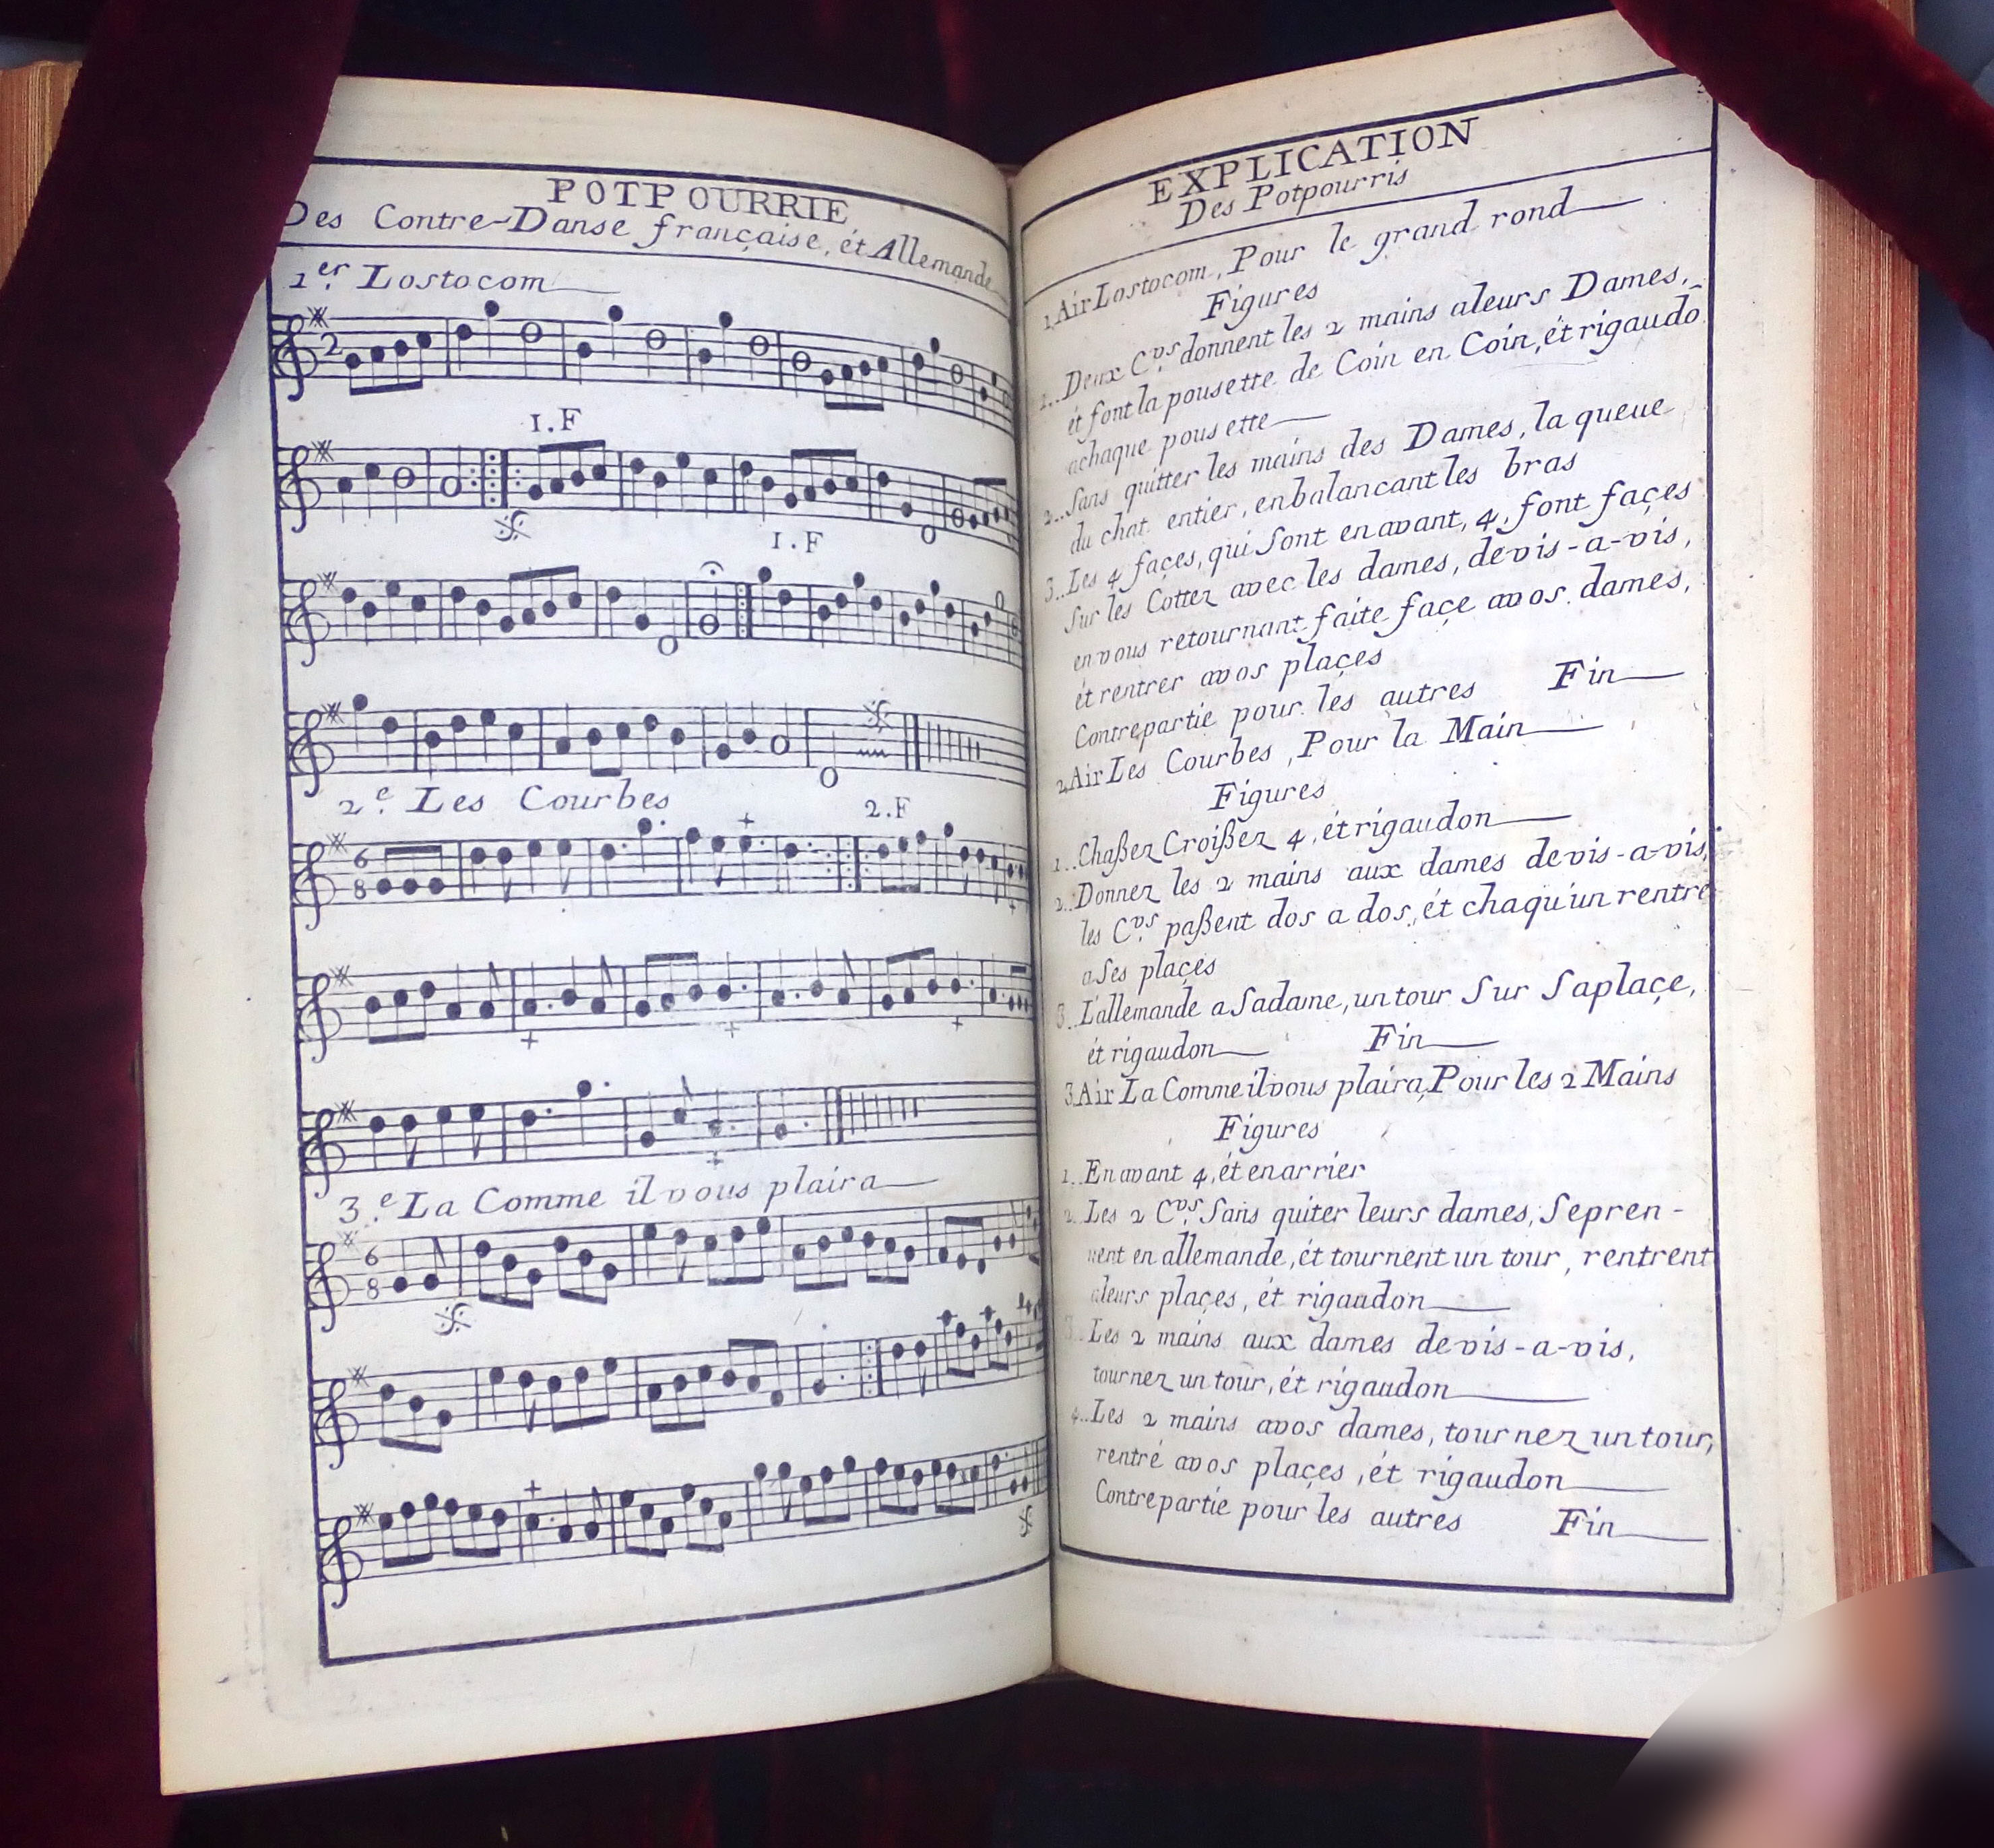 POTPOURRIE
Des Contre-Danse française, ét Allemande
1.er Lostocom
2
1.F
1.F
2.e Les Courbes
2.F
6
8
3.e La Comme il vous plaira
6
8
EXPLICATION
Des Potpourris
1.Air Lostocom, Pour le grand rond
Figures
1.. Deux C.vrs donnent les 2 mains aleurs Dames,
ét font la pousette de Coin en Coin, ét rigaudō
achaque pousette
2.. Sans quitter les mains des Dames, la queue
du chat entier, enbalancant les bras
3.. Les 4 façes, qui Sont enavant, 4, font façes
Sur les Cottez avec les dames, devis-a-vis,
envous retournant faite façe avos dames,
ét rentrer avos plaçes
Contrepartie pour les autres Fin
2.Air Les Courbes, Pour la Main
Figures
1.. Chaßez Croißez 4, ét rigaudon
2.. Donnez les 2 mains aux dames devis-a-vis,
les C.vrs paßent dos a dos, ét chaqu'un rentre
a Ses plaçes
3.. L'allemande a Sadame, un tour Sur Saplaçe,
ét rigaudon Fin
3.Air La Comme il vous plaira, Pour les 2 Mains
Figures
1.. En avant 4, ét enarrier
2.. Les 2 C.vrs Sans quiter leurs dames, Sepren-
nent en allemande, ét tournent un tour, rentrent
aleurs plaçes, ét rigaudon
3.. Les 2 mains aux dames devis-a-vis,
tournez un tour, ét rigaudon
4.. Les 2 mains avos dames, tournez un tour,
rentré avos plaçes, ét rigaudon
Contrepartie pour les autres Fin